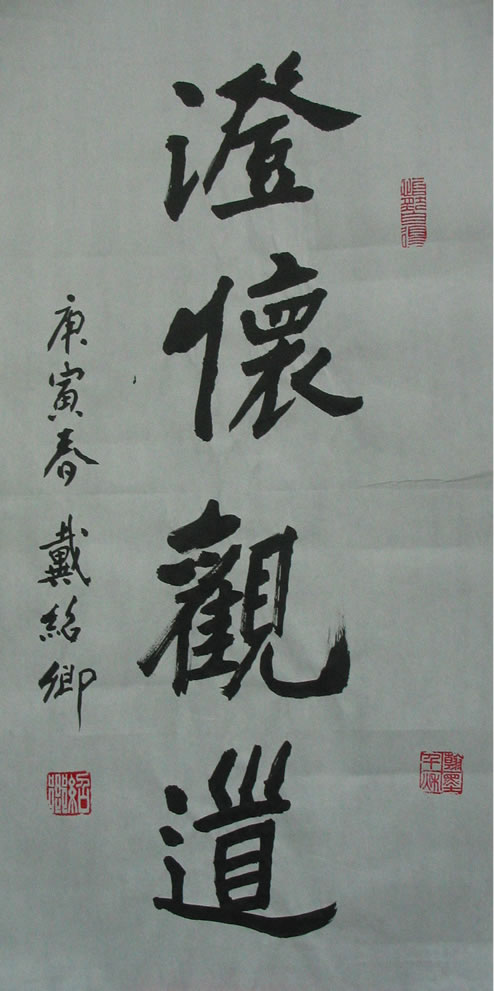 澄懷觀道
庚寅春 戴紹卿